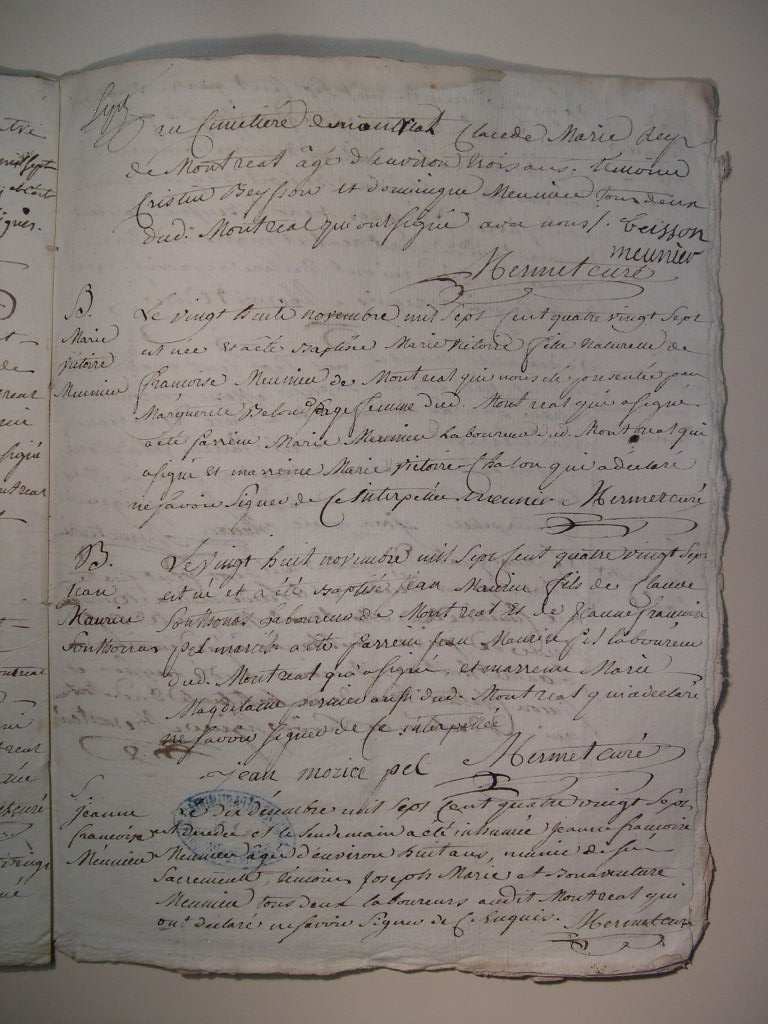 au Cimetiere de montreal Claude Marie
de Montreal âgé d'environ trois ans. témoins
Cristin Beysson et dominique Meunier tous deux
dud. Montreal qui ont signé avec nous /. beisson
meunier
Hermet curé
B.
Marie
victoire
Meunier
Le vingt huit novembre mil sept cent quatre vingt sept
est née et a été Baptisée Marie victoire fille naturelle de
francoise Meunier de Montreal qui nous a été presentée par
Marguerite sage femme dud. Montreal qui a signé.
a été parrein Marie Meunier Laboureur dud. Montreal qui
a signé et marreine Marie victoire Chalon qui a déclaré
ne savoir signer de ce interpellée. meunier Hermet curé
B.
jean
Maurice
Sonthonas
Le vingt huit novembre mil sept cent quatre vingt sept
est né et a été Baptisé jean Maurice fils de Claude
Sonthonas Laboureur de Montreal et de jeanne francoise
pel mariés a été parrein jean Maurice pel laboureur
dud. Montreal qui a signé, et marreine Marie
Magdelaine aussi dud. Montreal qui a declaré
ne savoir signer de ce interpellée
jean morice pel Hermet curé
S.
jeanne
francoise
Meunier
Le dix décembre mil sept cent quatre vingt sept
est decedée et le lendemain a été inhumée jeanne francoise
Meunier âgée d'environ huit ans, munie de ses
Sacremens, témoins joseph Marie et Bonaventure
Meunier tous deux laboureurs audit Montreal qui
ont déclaré ne savoir signer de ce Enquis. Hermet curé